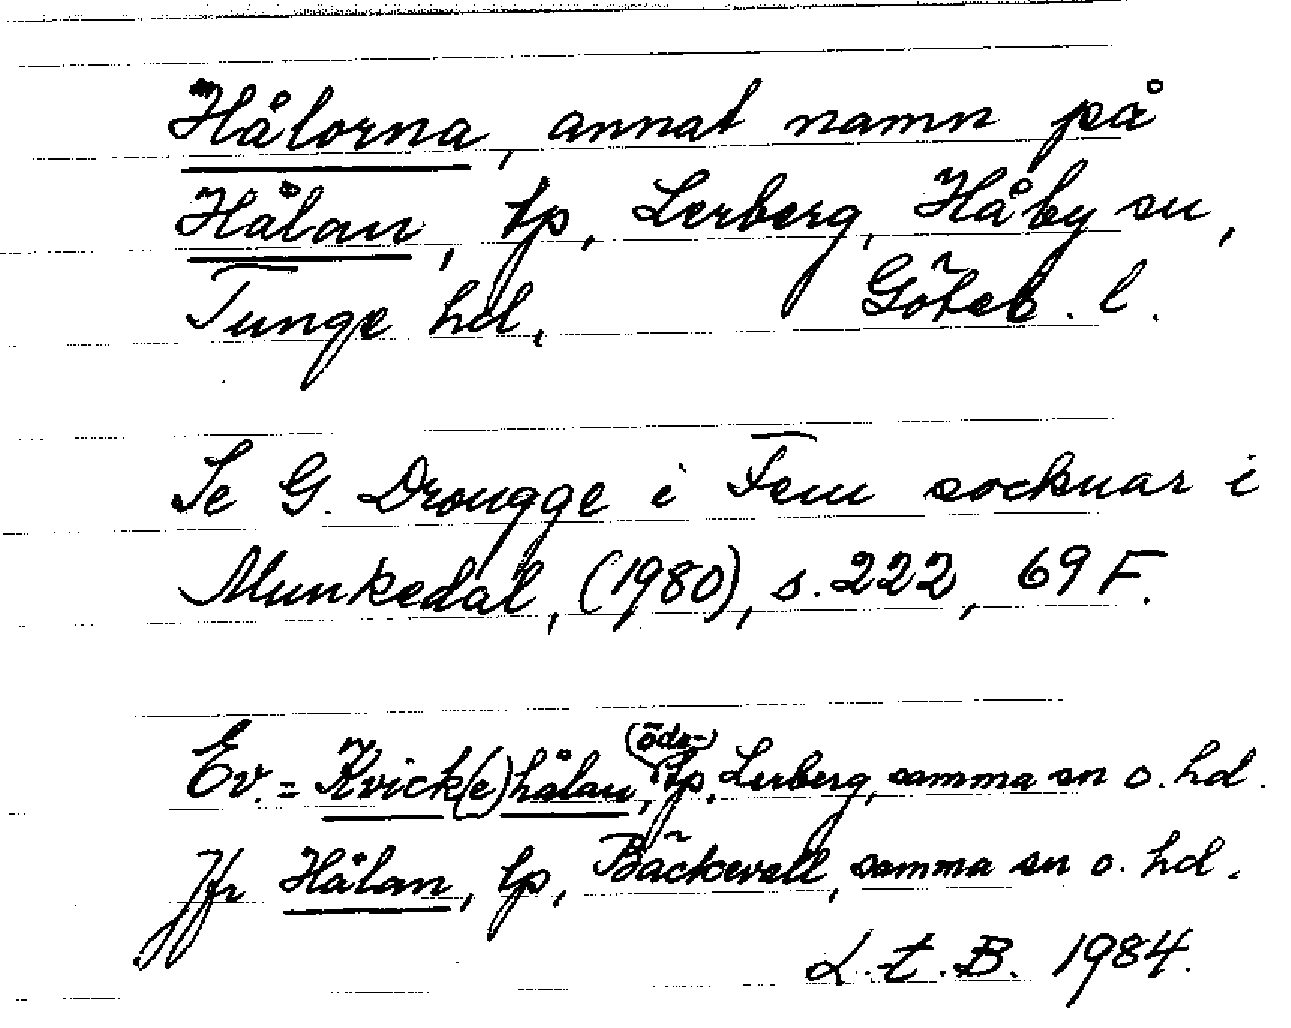 Hålorna, annat namn på
Hålan, tp, Lerberg, Håby sn,
Tunge hd. Göteb. l.
Se G. Drougge i Fem socknar i
Munkedal, (1980), s. 222, 69 F.
Ev. = Kvick(e)hålan, (öde-)tp, Lerberg, samma sn o. hd.
Jfr Hålan, tp, Bäckevall, samma sn o. hd.
L. t. B. 1984.